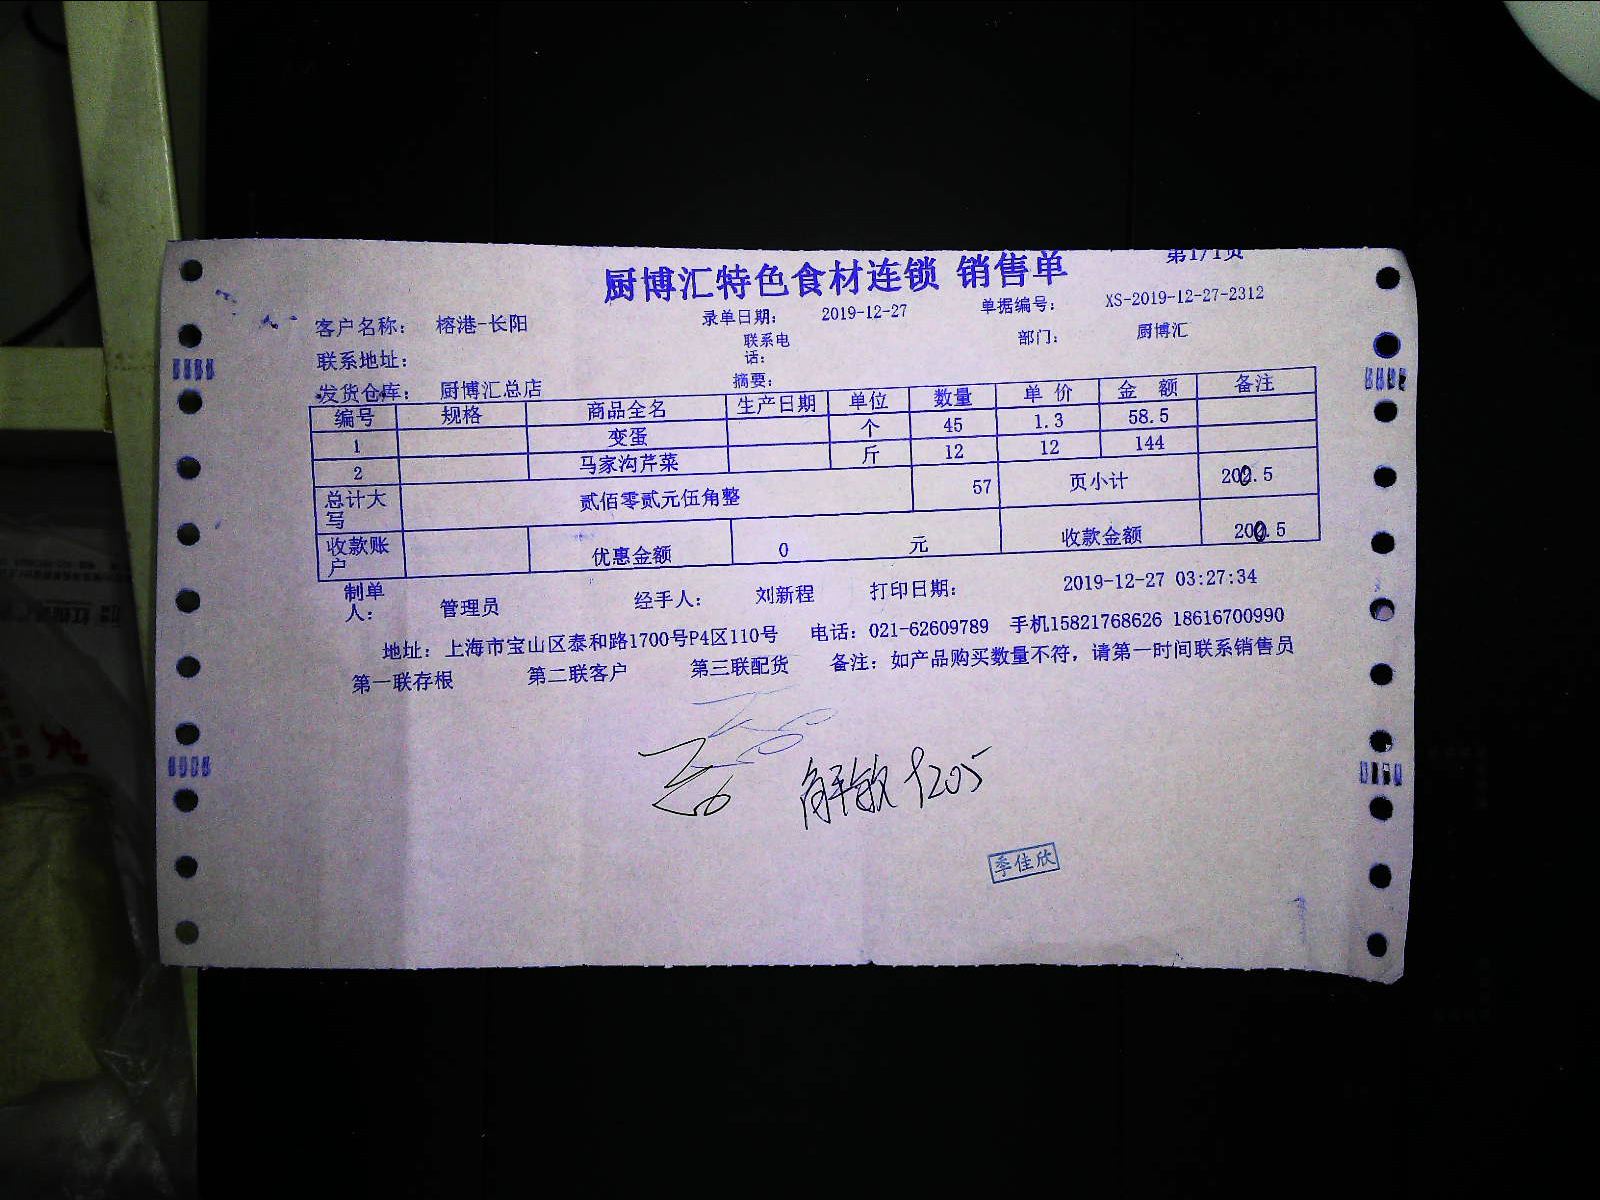 第1/1页
厨博汇特色食材连锁 销售单
客户名称： 榕港-长阳 录单日期： 2019-12-27 单据编号： XS-2019-12-27-2312
联系地址： 联系电话： 部门： 厨博汇
发货仓库： 厨博汇总店 摘要：
编号 规格 商品全名 生产日期 单位 数量 单价 金额 备注
1 变蛋 个 45 1.3 58.5
2 马家沟芹菜 斤 12 12 144
总计大写 贰佰零贰元伍角整 57 页小计 200.5
收款账户 优惠金额 0 元 收款金额 200.5
制单人： 管理员 经手人： 刘新程 打印日期： 2019-12-27 03:27:34
地址：上海市宝山区泰和路1700号P4区110号 电话：021-62609789 手机15821768626 18616700990
第一联存根 第二联客户 第三联配货 备注：如产品购买数量不符，请第一时间联系销售员
解敏 1205
季佳欣